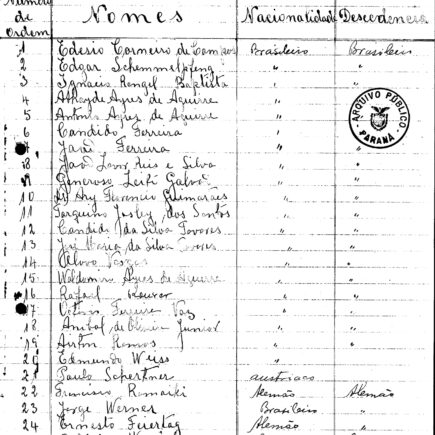 Número de Ordem Nomes Nacionalidade Descendencia
1 Edesio Corneiro de Campos Brasileiro Brasileiro
2 Edgar " "
3 Ignacio Rangel Baptista " "
4 Athayde Ayres de Aguirre " "
5 Antonio Ayres de Aguirre " "
6 Candido Ferreira " "
7 João Ferreira " "
8 João Reis e Silva " "
9 Generoso Leite Galvão " "
10 Ary Florencio Guimarães " "
11 Tarquino dos Santos " "
12 Candido da Silva Tavares " "
13 José Maria da Silva Tavares " "
14 Vargas " "
15 Waldomiro Ayres de Aguirre " "
16 Rafael " "
17 Ferreira Vaz " "
18 Anibal de Junior " "
19 Airton Ramos " "
20 Edmundo Weiss " "
21 Paulo Schertner austriaco
22 Francisco Alemão Alemão
23 Jorge Werner Brasileiro "
24 Ernesto Feiertag Alemão "
ARQUIVO PÚBLICO
PARANÁ